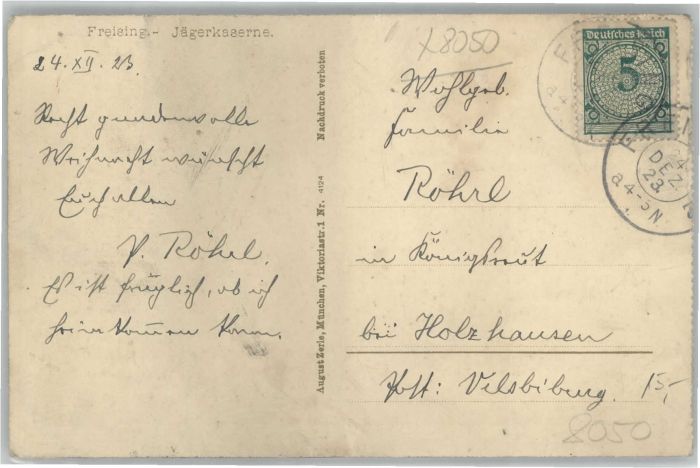 Freising.- Jägerkaserne.
24.XII.23.
Recht gnadenvolle
Weihnacht wünscht
Euch allen
P. Röhrl.
Es ist fraglich, ob ich
heimkommen kann.
August Zerle, München, Viktoriastr.1 Nr. 4124 Nachdruck verboten
X8050
Wohlgeb.
Familie
Röhrl
in Königsreut
bei Holzhausen
Post: Vilsbiburg.
15,-
8050
Deutsches Reich
5
24
DEZ.
23.
a4-5N